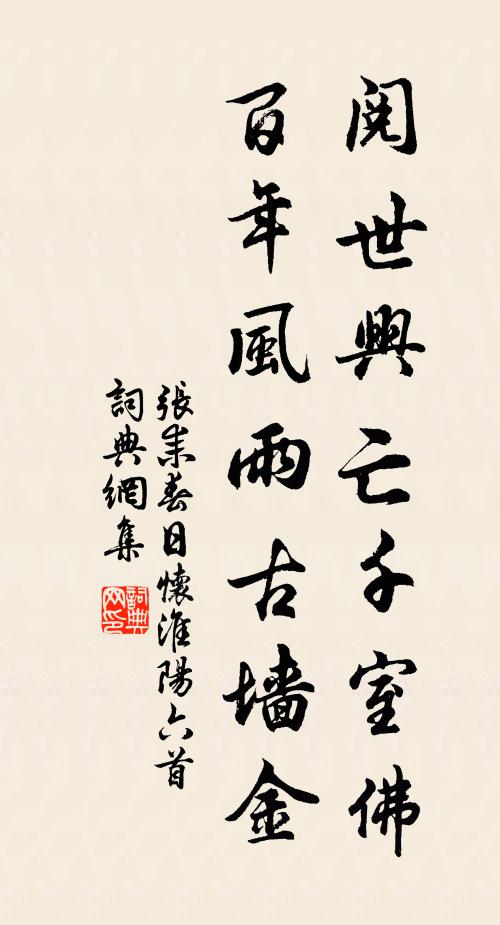 閱世興亡千室佛
百年風雨古墻金
張耒春日懷淮陽六首
詞典網集
詞典网印